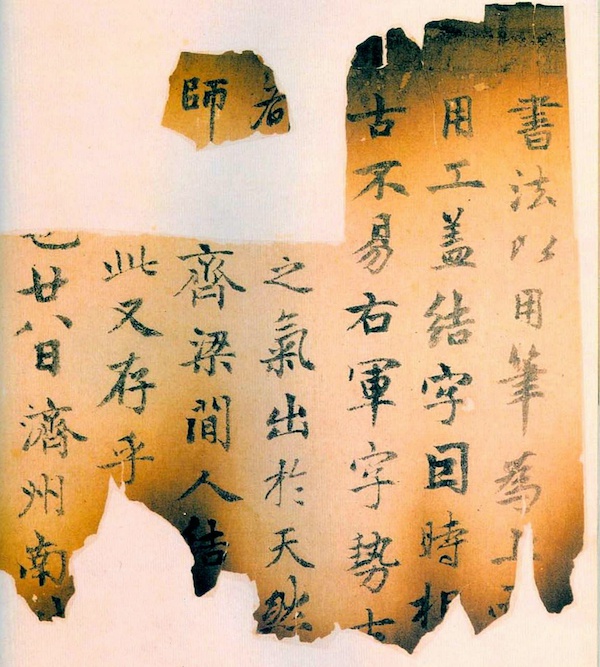 書法以用筆為上而
用工盖結字因時相
古不易右軍字勢古
者之氣出於天然
師齊梁間人結
此又存乎
也廿八日濟州南